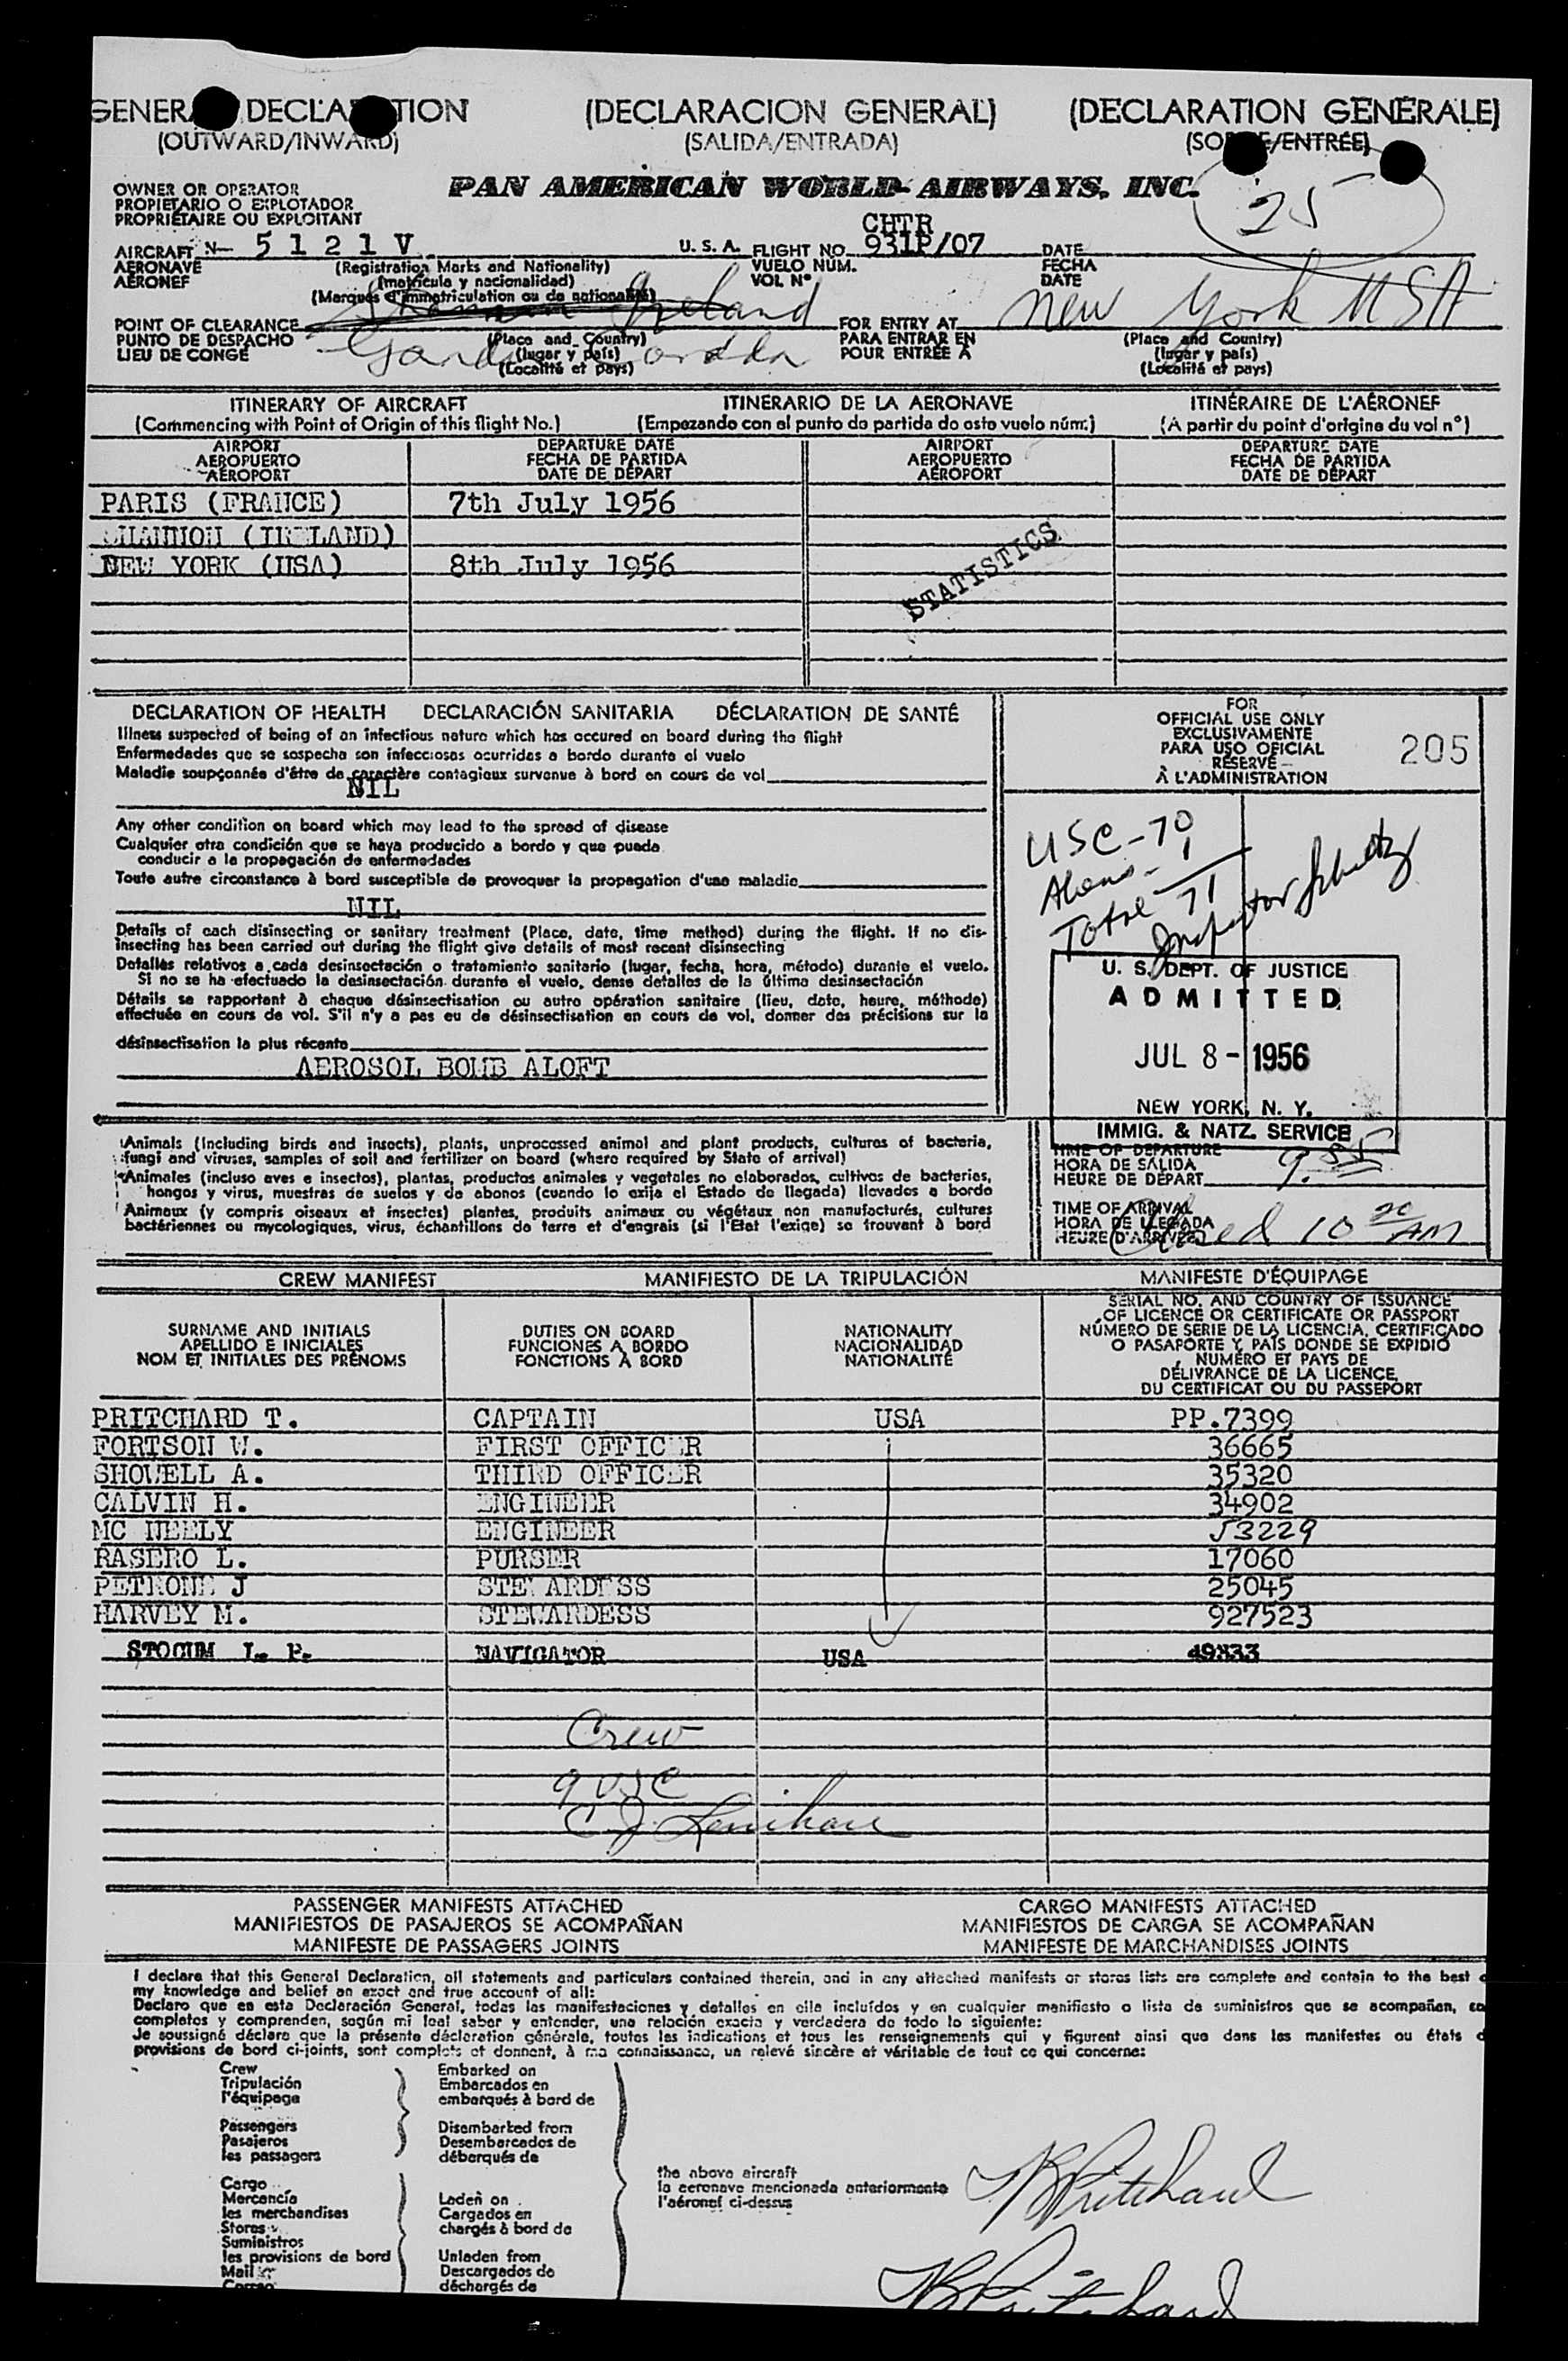 GENERAL DECLARATION (DECLARACION GENERAL) (DECLARATION GÉNÉRALE)
(OUTWARD/INWARD) (SALIDA/ENTRADA) (SORTIE/ENTRÉE)
PAN AMERICAN WORLD AIRWAYS, INC.
OWNER OR OPERATOR
PROPIETARIO O EXPLOTADOR
PROPRIÉTAIRE OU EXPLOITANT
25
CHTR
AIRCRAFT N- 5 1 2 1 V U. S. A. FLIGHT NO. 931P/07 DATE
AERONAVE (Registration Marks and Nationality) VUELO NÚM. FECHA
AÉRONEF (matrícula y nacionalidad) VOL N° DATE
(Marques d'immatriculation ou de nationalité)
Shannon Ireland New York USA
POINT OF CLEARANCE (Place and Country) FOR ENTRY AT (Place and Country)
PUNTO DE DESPACHO (lugar y país) PARA ENTRAR EN (lugar y país)
LIEU DE CONGÉ (Localité et pays) POUR ENTRÉE À (Localité et pays)
ITINERARY OF AIRCRAFT ITINERARIO DE LA AERONAVE ITINÉRAIRE DE L'AÉRONEF
(Commencing with Point of Origin of this flight No.) (Empezando con el punto de partida de este vuelo núm.) (A partir du point d'origine du vol n°)
AIRPORT DEPARTURE DATE AIRPORT DEPARTURE DATE
AEROPUERTO FECHA DE PARTIDA AEROPUERTO FECHA DE PARTIDA
AÉROPORT DATE DE DÉPART AÉROPORT DATE DE DÉPART
PARIS (FRANCE) 7th July 1956
SHANNON (IRELAND)
NEW YORK (USA) 8th July 1956
STATISTICS
DECLARATION OF HEALTH DECLARACIÓN SANITARIA DÉCLARATION DE SANTÉ
Illness suspected of being of an infectious nature which has occured on board during the flight
Enfermedades que se sospecha son infecciosas ocurridas a bordo durante el vuelo
Maladie soupçonnée d'être de caractère contagieux survenue à bord en cours de vol
NIL
Any other condition on board which may lead to the spread of disease
Cualquier otra condición que se haya producido a bordo y que pueda
conducir a la propagación de enfermedades
Toute autre circonstance à bord susceptible de provoquer la propagation d'une maladie
NIL
Details of each disinsecting or sanitary treatment (Place, date, time method) during the flight. If no dis-
insecting has been carried out during the flight give details of most recent disinsecting
Detalles relativos a cada desinsectación o tratamiento sanitario (lugar, fecha, hora, método) durante el vuelo.
Si no se ha efectuado la desinsectación durante el vuelo, dense detalles de la última desinsectación
Détails se rapportant à chaque désinsectisation ou autre opération sanitaire (lieu, date, heure, méthode)
effectuée en cours de vol. S'il n'y a pas eu de désinsectisation en cours de vol, donner des précisions sur la
désinsectisation la plus récente
AEROSOL BOMB ALOFT
FOR
OFFICIAL USE ONLY
EXCLUSIVAMENTE
PARA USO OFICIAL
RÉSERVÉ
À L'ADMINISTRATION
205
USC-70
Aliens- 1
Total 71
Inspector Schultz
U. S. DEPT. OF JUSTICE
ADMITTED
JUL 8 - 1956
NEW YORK, N. Y.
IMMIG. & NATZ. SERVICE
Animals (Including birds and insects), plants, unprocessed animal and plant products, cultures of bacteria,
fungi and viruses, samples of soil and fertilizer on board (where required by State of arrival)
Animales (incluso aves e insectos), plantas, productos animales y vegetales no elaborados, cultivos de bacterias,
hongos y virus, muestras de suelos y de abonos (cuando lo exija el Estado de llegada) llevados a bordo
Animaux (y compris oiseaux et insectes) plantes, produits animaux ou végétaux non manufacturés, cultures
bactériennes ou mycologiques, virus, échantillons de terre et d'engrais (si l'Etat l'exige) se trouvant à bord
TIME OF DEPARTURE
HORA DE SALIDA
HEURE DE DÉPART 9:55
TIME OF ARRIVAL
HORA DE LLEGADA
HEURE D'ARRIVÉE 10 AM
CREW MANIFEST MANIFIESTO DE LA TRIPULACIÓN MANIFESTE D'ÉQUIPAGE
SURNAME AND INITIALS
APELLIDO E INICIALES
NOM ET INITIALES DES PRÉNOMS
DUTIES ON BOARD
FUNCIONES A BORDO
FONCTIONS À BORD
NATIONALITY
NACIONALIDAD
NATIONALITÉ
SERIAL NO. AND COUNTRY OF ISSUANCE
OF LICENCE OR CERTIFICATE OR PASSPORT
NÚMERO DE SERIE DE LA LICENCIA, CERTIFICADO
O PASAPORTE Y PAÍS DONDE SE EXPIDIÓ
NUMÉRO ET PAYS DE
DÉLIVRANCE DE LA LICENCE,
DU CERTIFICAT OU DU PASSEPORT
PRITCHARD T. CAPTAIN USA PP.7399
FORTSON W. FIRST OFFICER 36665
SHOWELL A. THIRD OFFICER 35320
CALVIN H. ENGINEER 34902
MC NEELY ENGINEER 53229
RASERO L. PURSER 17060
PETRONE J STEWARDESS 25045
HARVEY M. STEWARDESS 927523
STOCUM L. P. NAVIGATOR USA 49833
Crew
9 USC
C J Lenihan
PASSENGER MANIFESTS ATTACHED CARGO MANIFESTS ATTACHED
MANIFIESTOS DE PASAJEROS SE ACOMPAÑAN MANIFIESTOS DE CARGA SE ACOMPAÑAN
MANIFESTE DE PASSAGERS JOINTS MANIFESTE DE MARCHANDISES JOINTS
I declare that this General Declaration, all statements and particulars contained therein, and in any attached manifests or stores lists are complete and contain to the best
my knowledge and belief an exact and true account of all:
Declaro que en esta Declaración General, todas las manifestaciones y detalles en ella incluídos y en cualquier manifiesto o lista de suministros que se acompañan,
completos y comprenden, según mi leal saber y entender, una relación exacta y verdadera de todo lo siguiente:
Je soussigné déclare que la présente déclaration générale, toutes les indications et tous les renseignements qui y figurent ainsi que dans les manifestes ou états
provisions de bord ci-joints, sont complets et donnent, à ma connaissance, un relevé sincère et véritable de tout ce qui concerne:
Crew Embarked on
Tripulación Embarcados en
l'équipage embarqués à bord de
Passengers Disembarked from
Pasajeros Desembarcados de
les passagers débarqués de
the above aircraft
la aeronave mencionada anteriormente
l'aéronef ci-dessus
Cargo
Mercancía Laden on
les merchandises Cargados en
Stores chargés à bord de
Suministros
les provisions de bord Unladen from
Mail Descargados de
Correo déchargés de
Pritchard
Pritchard